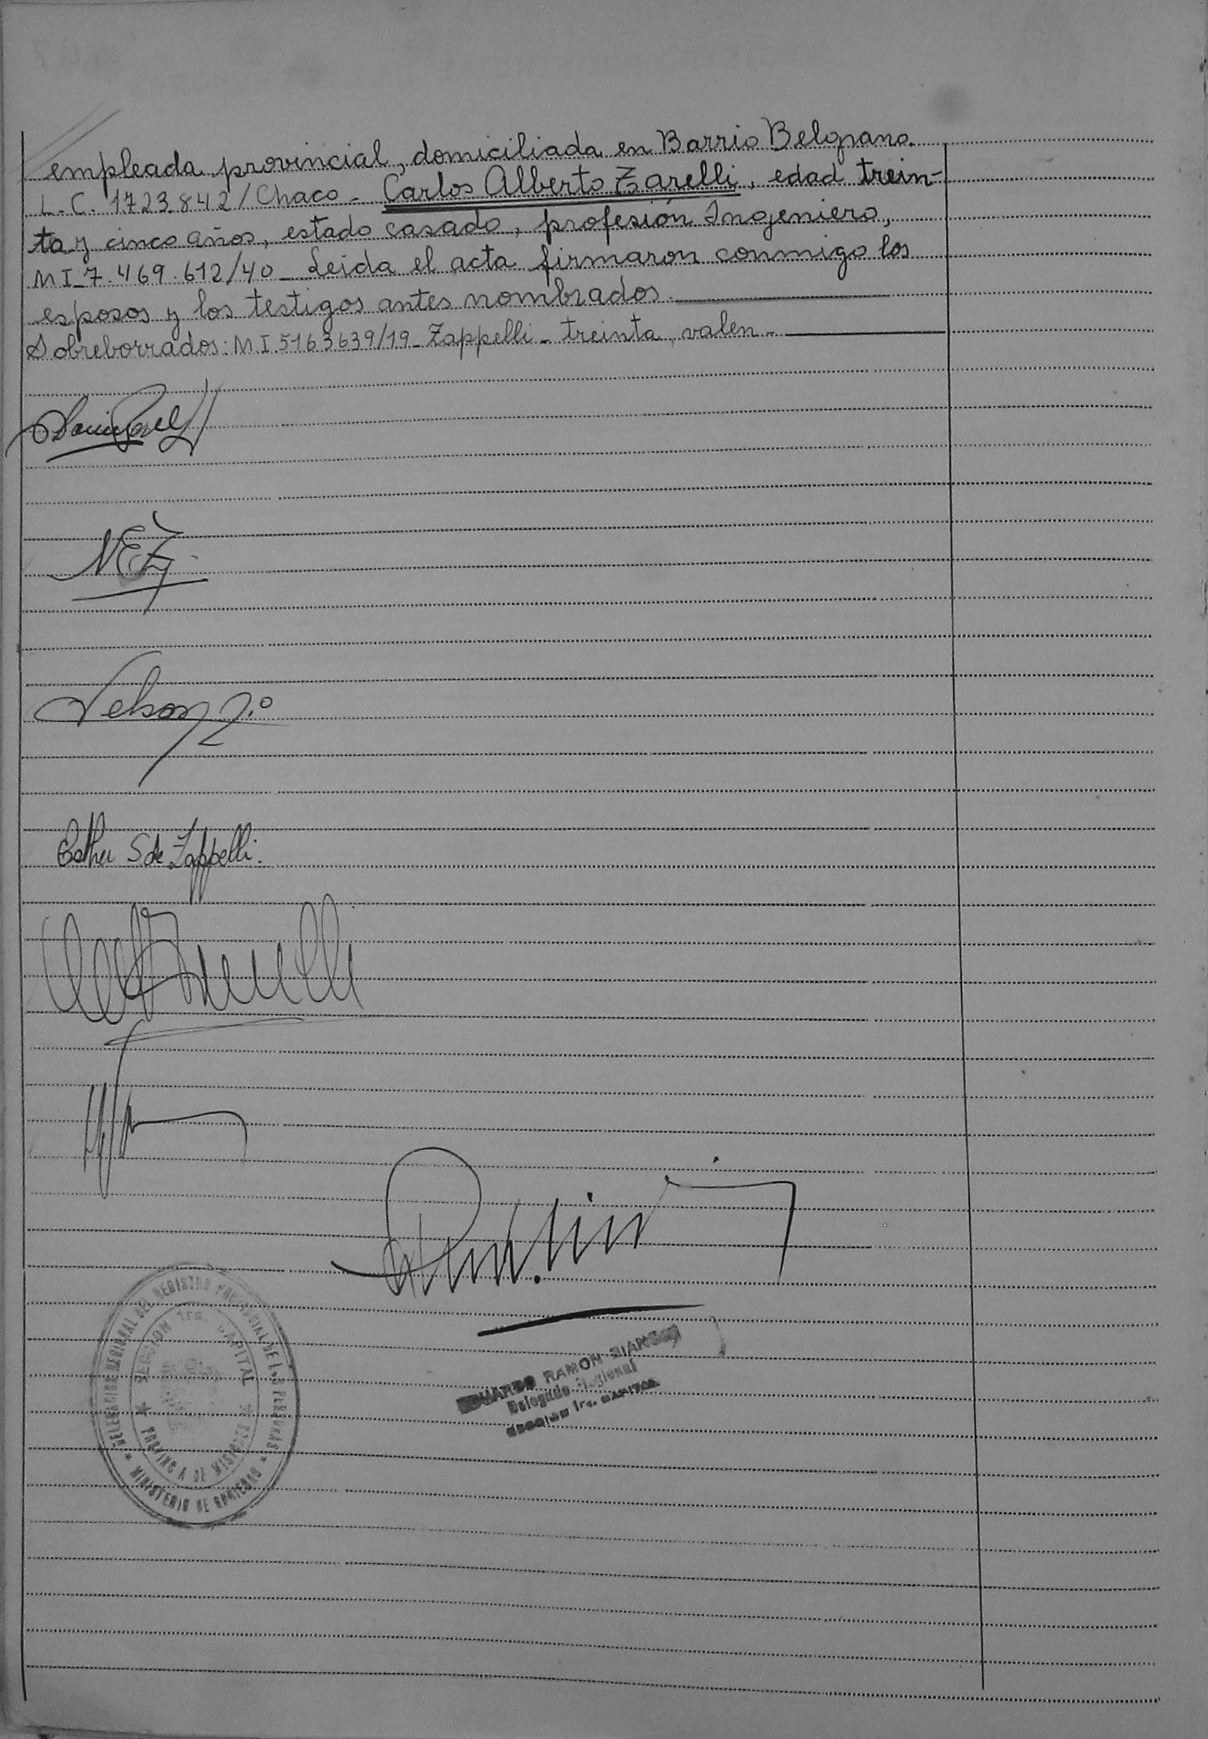 empleada provincial, domiciliada en Barrio Belgrano.
L.C. 1723.842/Chaco - Carlos Alberto Zarelli, edad trein-
ta y cinco años, estado casado, profesión Ingeniero,
MI_7.469.612/40 _ Leída el acta firmaron conmigo los
esposos y los testigos antes nombrados.
Sobreborrados: MI.5163639/19_ Zappelli - treinta, valen -
NEZ
Nelson
Esther S de Zappelli.
DELEGACION REGIONAL DEL REGISTRO PROVINCIAL DE LAS PERSONAS
SECCION 1ra. CAPITAL
PROVINCIA DE MISIONES
MINISTERIO DE GOBIERNO
EDUARDO RAMON
Delegado Regional
SECCION 1ra. CAPITAL